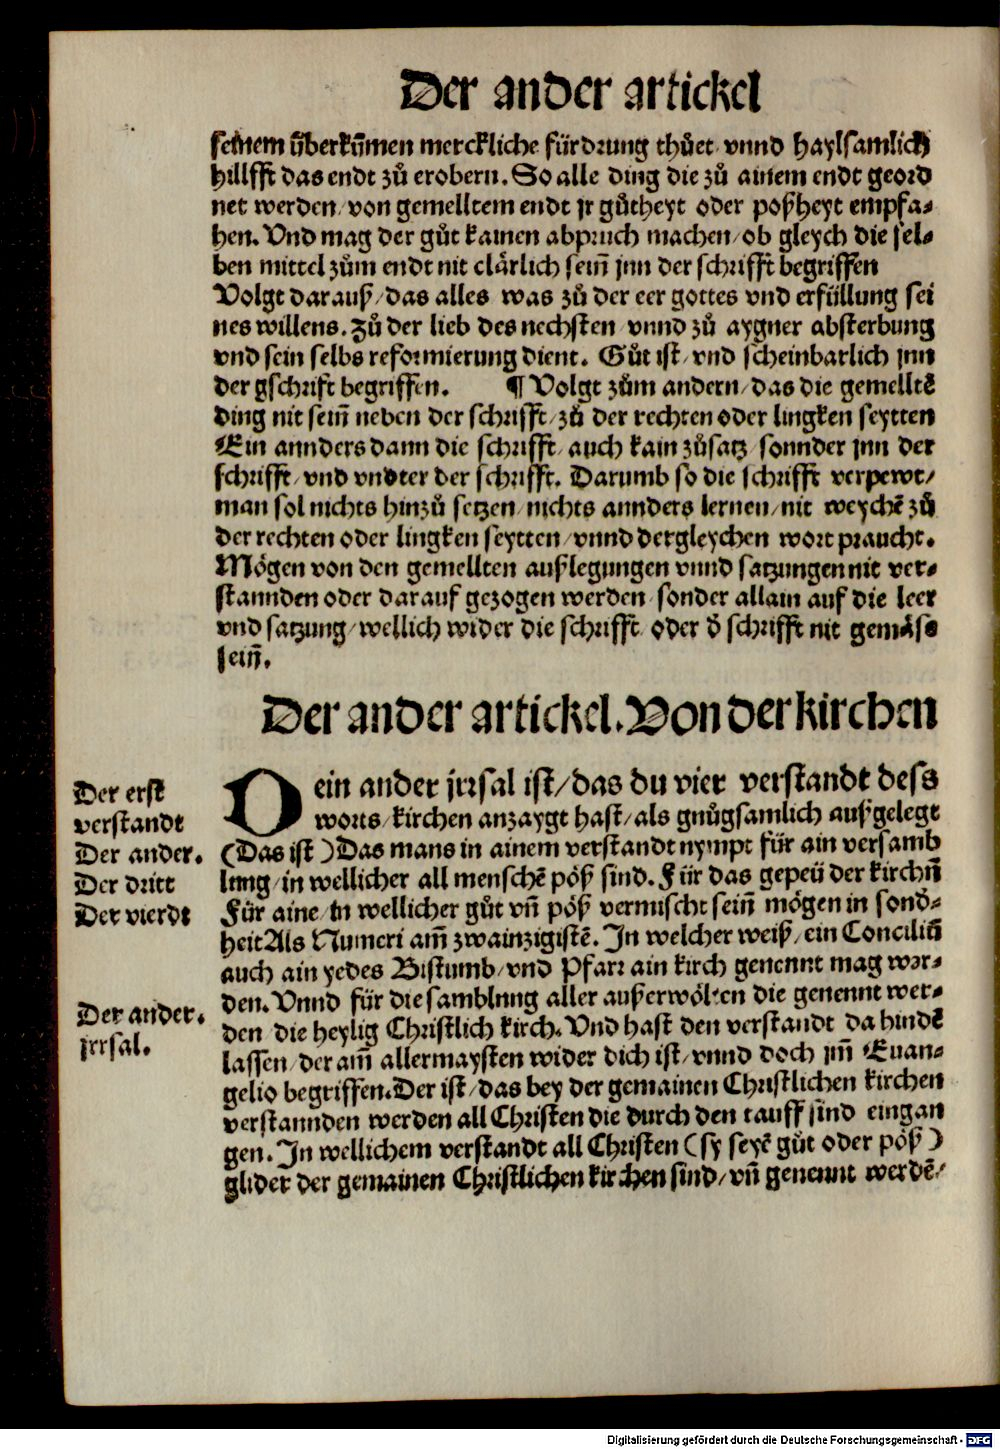 Der ander artickel
seinem v̈berkūmen merckliche fürdrung thůet vnnd haylsamlich
hillfft das endt zů erobern. So alle ding die zů ainem endt geord
net werden/ von gemelltem endt jr gůtheyt oder poßheyt empfa-
hen. Vnd mag der gůt kainen abpruch machen/ ob gleych die sel-
ben mittel zům endt nit clärlich sein̄ jnn der schrifft begriffen
Volgt darauß/ das alles was zů der eer gottes vnd erfüllung sei
nes willens. Zů der lieb des nechsten vnnd zů aygner absterbung
vnd sein selbs reformierung dient. Gůt ist/ vnd scheinbarlich jnn
der gschrift begriffen. ¶ Volgt zům andern/ das die gemelltē
ding nit sein̄ neben der schrifft/ zů der rechten oder lingken seytten
Ein annders dann die schrifft/ auch kain zůsatz/ sonnder jnn der
schrifft/ vnd vndter der schrifft. Darumb so die schrifft verpewt/
man sol nichts hinzů setzen/ nichts annders lernen/ nit weychē zů
der rechten oder lingken seytten/ vnnd dergleychen wort praucht.
Mögen von den gemellten außlegungen vnnd satzungen nit ver-
stannden oder darauf gezogen werden/ sonder allain auf die leer
vnd satzung/ wellich wider die schrifft/ oder d̓ schrifft nit gemäß
sein̄.
Der ander artickel. Von der kirchen
Dein ander jrrsal ist/ das du vier verstandt dess
worts/ kirchen anzaygt hast/ als gnůgsamlich außgelegt
(Das ist) Das mans in ainem verstandt nympt für ain versamb
lung/ in wellicher all menschē pöß sind. Für das gepeü der kirchn̄
Für aine/ in wellicher gůt vn̄ pöß vermischt sein̄ mögen in sond̓-
heit Als Numeri am̄ zwainzigistē. In welcher weiß/ ein Conciliū
auch ain yedes Bistumb/ vnd Pfarr ain kirch genennt mag wer-
den. Vnnd für die samblung aller außerwölten die genennt wer-
den die heylig Christlich kirch. Vnd hast den verstandt da hindē
lassen/ der am̄ allermaysten wider dich ist/ vnnd doch jm̄ Euan-
gelio begriffen. Der ist/ das bey der gemainen Christlichen kirchen
verstannden werden all Christen die durch den tauff sind eingan
gen. In wellichem verstandt all Christen (sy seyē gůt oder pöß)
glider der gemainen Christlichen kirchen sind/ vn̄ genennt werdē/
Der erst
verstandt
Der ander.
Der dritt
Der vierdt
Der ander.
jrrsal.
Digitalisierung gefördert durch die Deutsche Forschungsgemeinschaft - DFG